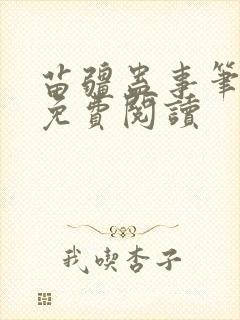 苗疆蠱事筆
免費閱讀
我喫杏子